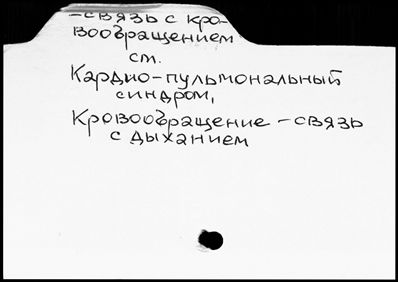 -связь с кро-
вообращением
см.
Кардио-пульмональный
синдром,
Кровообращение - связь
с дыханием